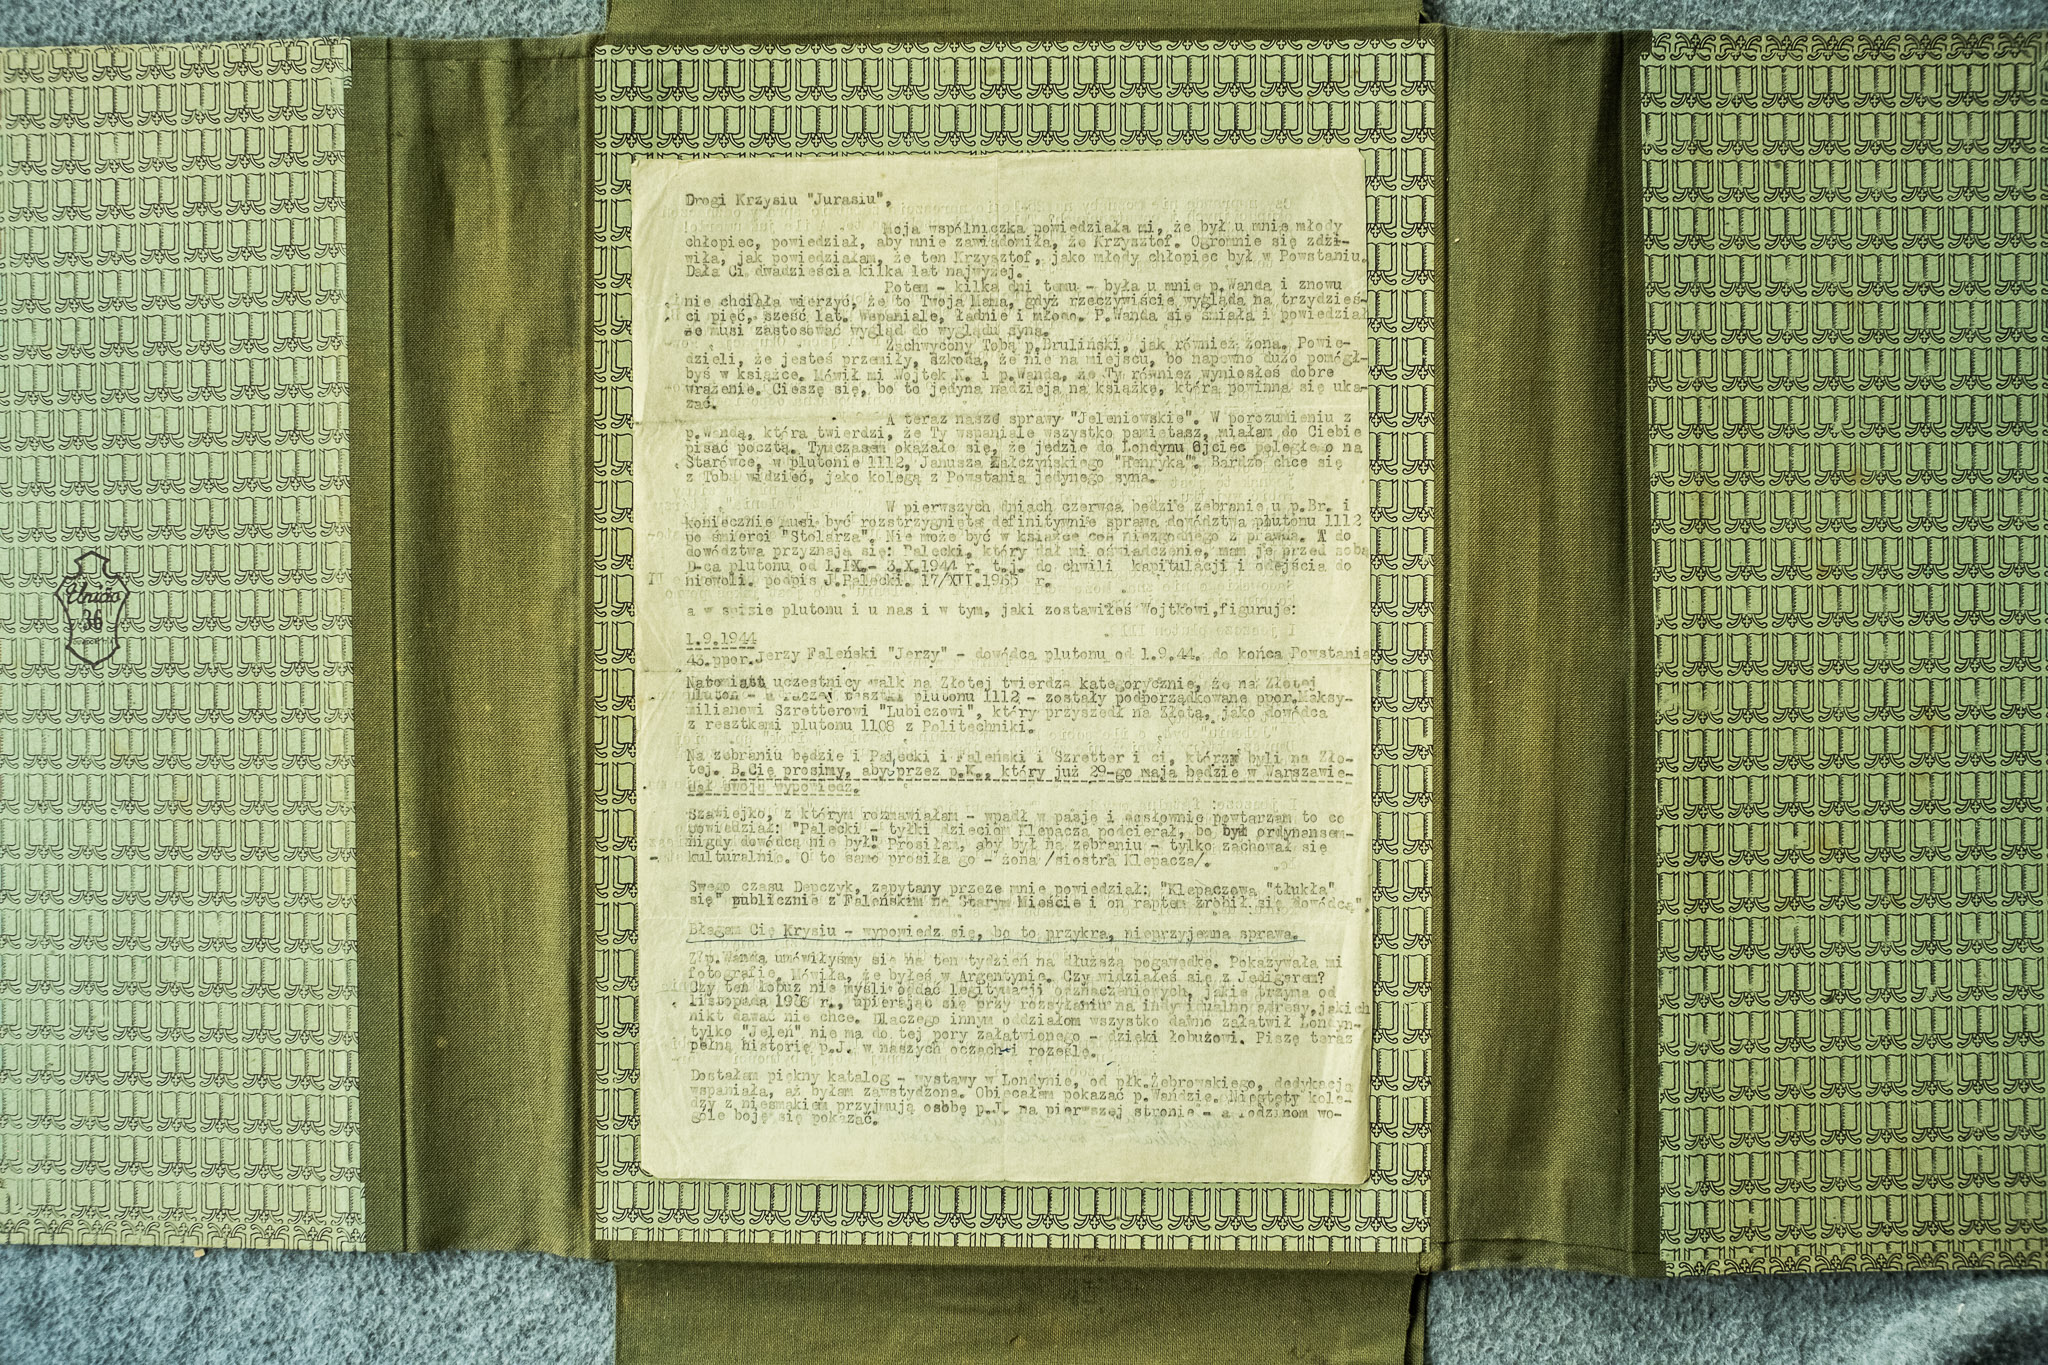 Drogi Krzysiu "Jurasiu",
Moja wspólniczka powiedziała mi, że był u mnie młody
chłopiec, powiedział, aby mnie zawiadomiła, że Krzysztof. Ogromnie się zdzi-
wiła, jak powiedziałam, że ten Krzysztof, jako młody chłopiec był w Powstaniu.
Dała Ci dwadzieścia kilka lat najwyżej.
Potem - kilka dni temu - była u mnie p.Wanda i znowu
nie chciała wierzyć, że to Twoja Mama, gdyż rzeczywiście wygląda na trzydzieś-
ci pięć, sześć lat. Wspaniale, ładnie i młodo. P.Wanda się śmiała i powiedział
że musi zastosować wygląd do wyglądu syna.
Zachwycony Tobą p.Bruliński, jak również żona. Powie-
dzieli, że jesteś przemiły, szkoda, że nie na miejscu, bo napewno dużo pomógł-
byś w książce. Mówił mi Wojtek K. i p.Wanda, że Ty również wyniosłeś dobre
wrażenie. Cieszę się, bo to jedyna nadzieja na książkę, która powinna się uka-
zać.
A teraz nasze sprawy "Jeleniowskie". W porozumieniu z
p.Wandą, która twierdzi, że Ty wspaniale wszystko pamiętasz, miałam do Ciebie
pisać pocztą. Tymczasem okazało się, że jedzie do Londynu Ojciec poległego na
Starówce, w plutonie 1112, Janusza "Henryka". Bardzo chce się
z Tobą widzieć, jako kolegą z Powstania jedynego syna.
W pierwszych dniach czerwca będzie zebranie u p.Br. i
koniecznie musi być rozstrzygnięta definitywnie sprawa dowództwa plutonu 1112
po śmierci "Stolarza". Nie może być w książce coś niezgodnego z prawdą. A do
dowództwa przyznają się: Pałecki, który dał mi oświadczenie, mam je przed sobą
D-ca plutonu od 1.IX.- 3.X.1944 r. t.j. do chwili kapitulacji i odejścia do
niewoli. podpis J.Pałecki. 17/XII. r.
a w spisie plutonu i u nas i w tym, jaki zostawiłeś Wojtkowi,figuruje:
1.9.1944
43.ppor.Jerzy Faleński "Jerzy" - dowódca plutonu od 1.9.44. do końca Powstania
Natomiast uczestnicy walk na Złotej twierdzą kategorycznie, że na Złotej
pluton - a raczej resztki plutonu 1112 - zostały podporządkowane ppor.Maksy-
milianowi Szretterowi "Lubiczowi", który przyszedł na Złotą, jako dowódca
z resztkami plutonu 1108 z Politechniki.
Na zebraniu będzie i Pałecki i Faleński i Szretter i ci, którzy byli na Zło-
tej. B.Cię prosimy, aby przez p.K., który już 29-go maja będzie w Warszawie-
dał swoją wypowiedź.
Szawiejko, z którym rozmawiałam - wpadł w pasję i dosłownie powtarzam to co
powiedział: "Pałecki - tyłki dzieciom Klepacza podcierał, bo był ordynansem-
nigdy dowódcą nie był". Prosiłam, aby był na zebraniu - tylko zachował się
kulturalnie. O to samo prosiła go - żona /siostra Klepacza/.
Swego czasu Depczyk, zapytany przeze mnie powiedział: "Klepaczowa "tłukła"
się" publicznie z Faleńskim na Starym Mieście i on raptem zrobił się dowódcą".
Błagam Cię Krysiu - wypowiedz się, bo to przykra, nieprzyjemna sprawa.
Z p.Wandą umówiłyśmy się na ten tydzień na dłuższą pogawędkę. Pokazywała mi
fotografie. Mówiła, że byłeś w Argentynie. Czy widziałeś się z Jedigerem?
Czy ten łobuz nie myśli oddać legitymacji odznaczeniowych, jakie trzyma od
listopada r., upierając się przy rozsyłaniu na indywidualne adresy,jakich
nikt dawać nie chce. Dlaczego innym oddziałom wszystko dawno załatwił Londyn-
tylko "Jeleń" nie ma do tej pory załatwionego - dzięki łobuzowi. Piszę teraz
pełną historię p.J. w naszych oczach i roześlę.
Dostałam piękny katalog - wystawy w Londynie, od płk.Żebrowskiego, dedykacja
wspaniała, aż byłam zawstydzona. Obiecałam pokazać p.Wandzie. Niestety kole-
dzy z niesmakiem przyjmują osobę p.J. na pierwszej stronie - a rodzinom wo-
góle boję się pokazać.
Unido
36